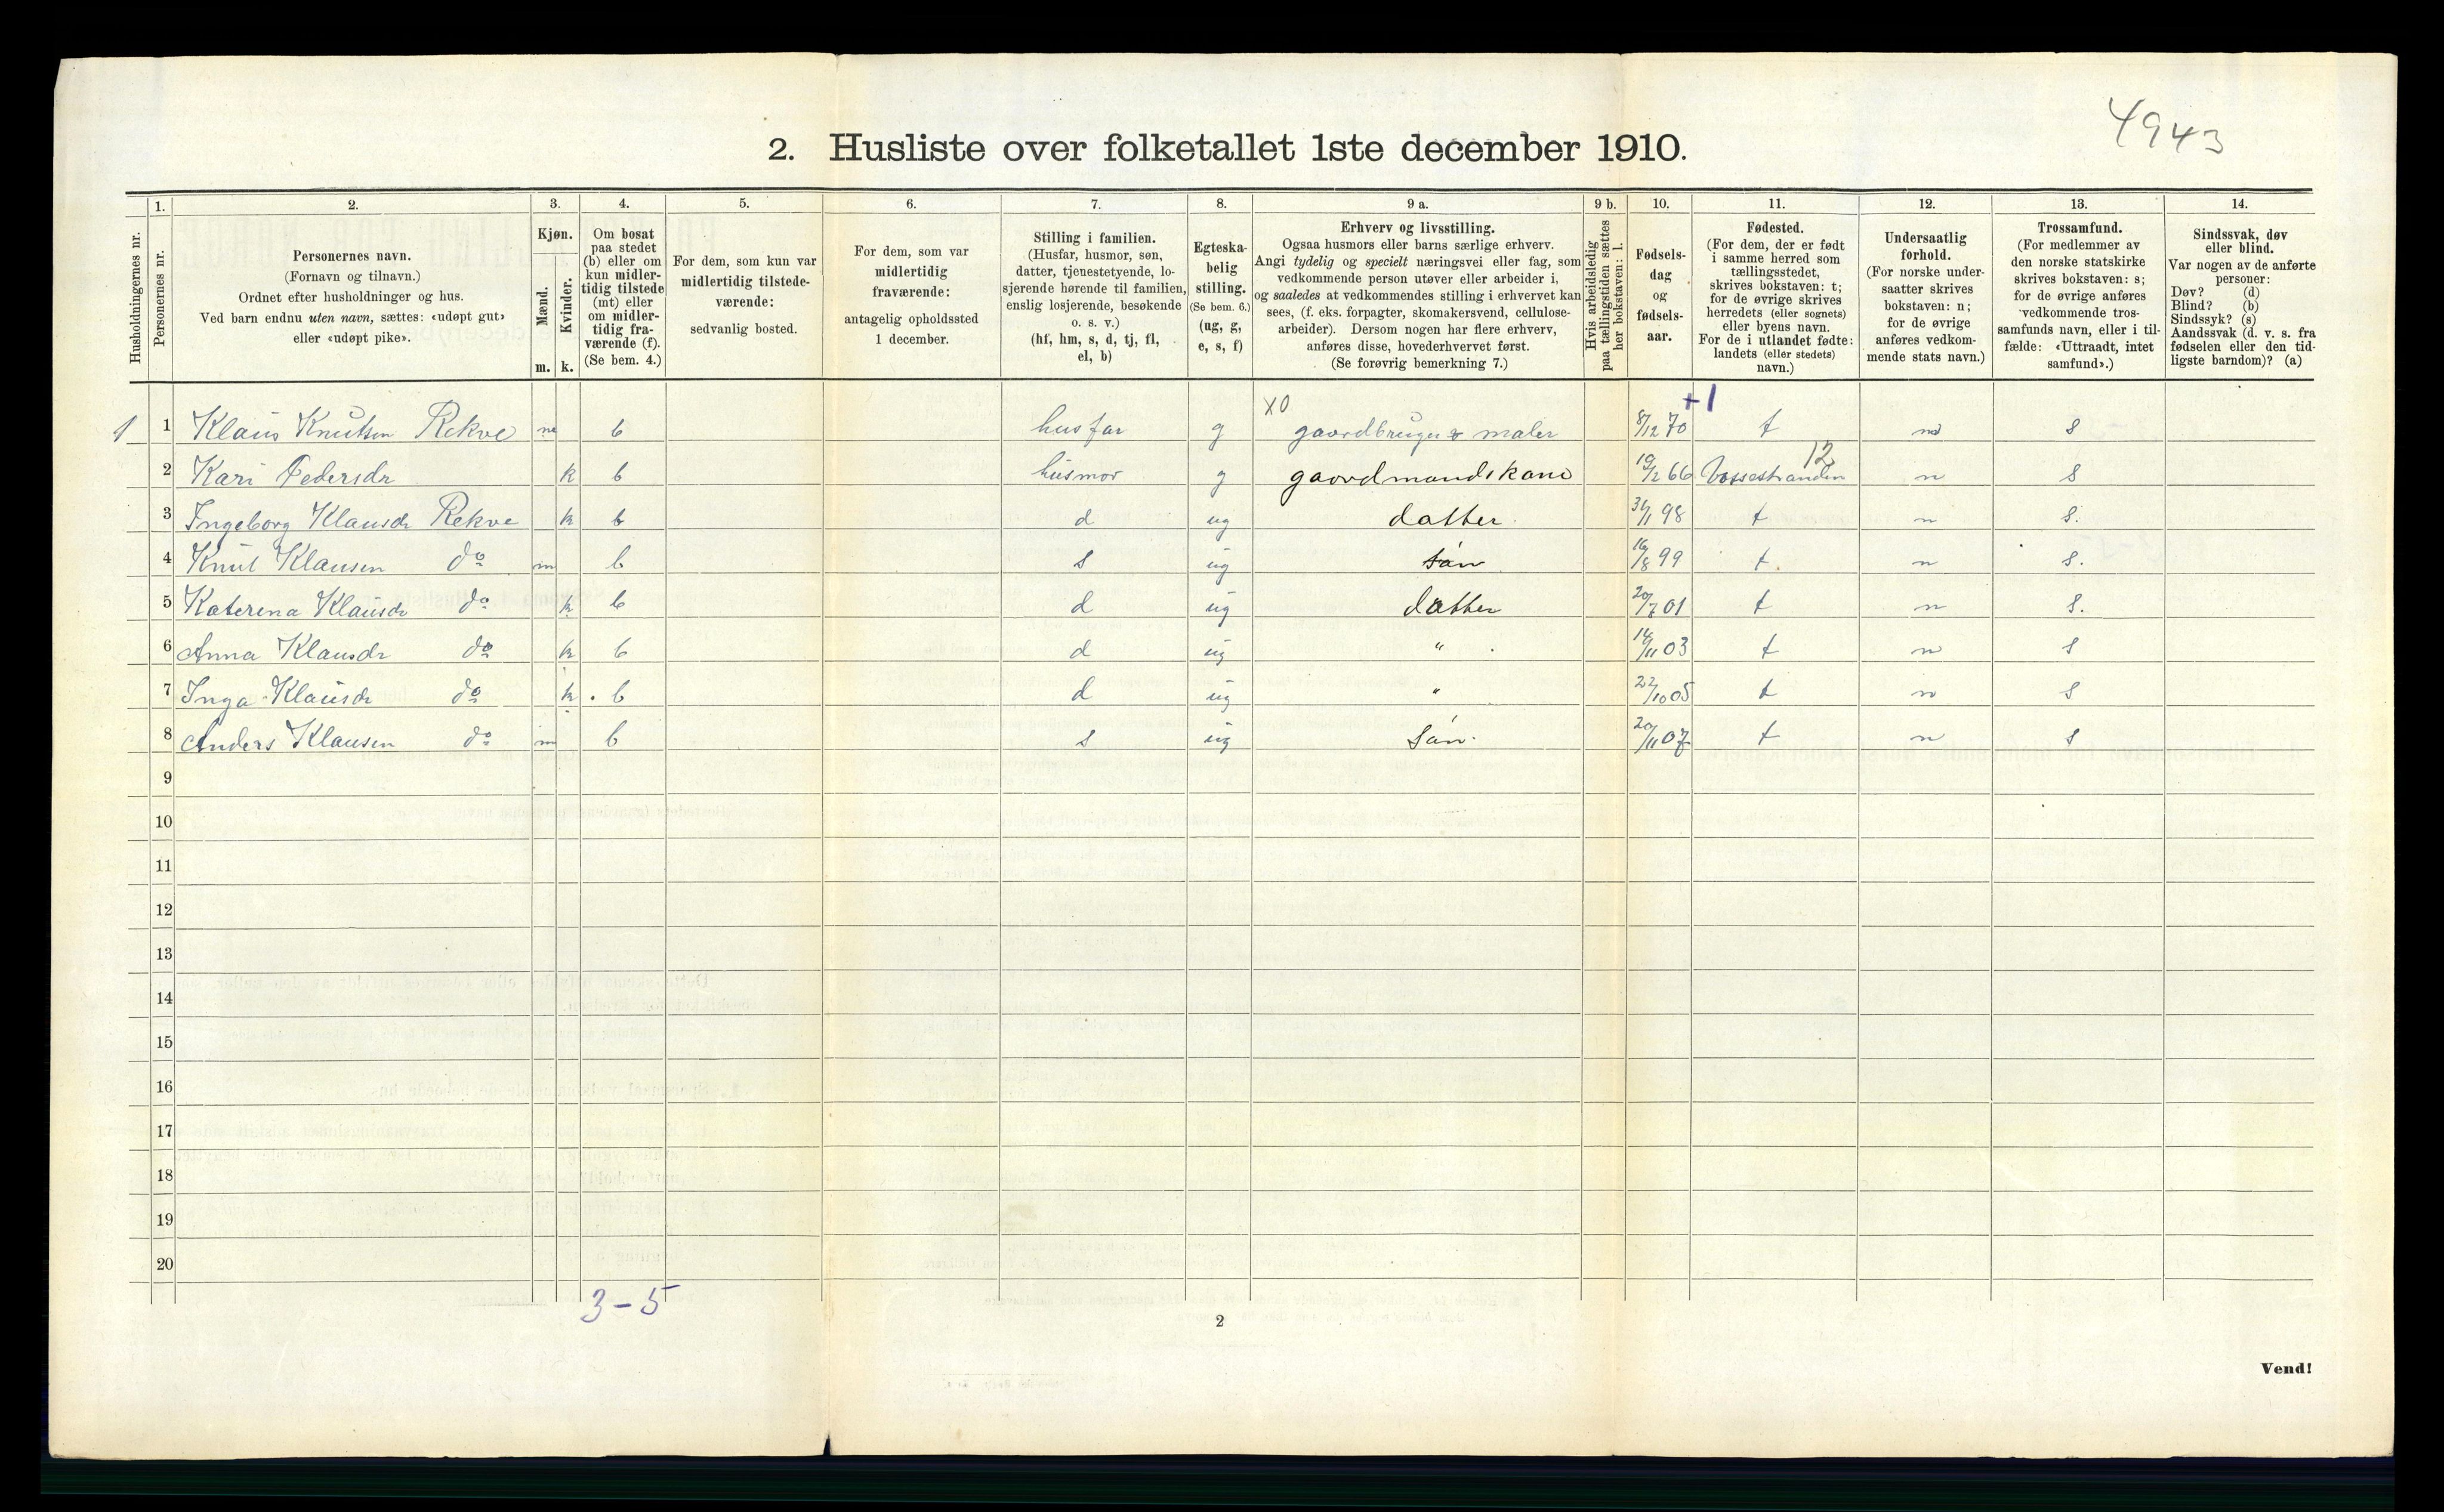 4943
2. Husliste over folketallet 1ste december 1910.
Husholdningernes nr.
1. Personernes nr.
2. Personernes navn.
(Fornavn og tilnavn.)
Ordnet efter husholdninger og hus.
Ved barn endnu uten navn, sættes: «udøpt gut»
eller «udøpt pike».
3. Kjøn.
Mænd. Kvinder.
m. k.
4. Om bosat
paa stedet
(b) eller om
kun midler-
tidig tilstede
(mt) eller
om midler-
tidig fra-
værende (f).
(Se bem. 4.)
5. For dem, som kun var
midlertidig tilstede-
værende:
sedvanlig bosted.
6. For dem, som var
midlertidig
fraværende:
antagelig opholdssted
1 december.
7. Stilling i familien.
(Husfar, husmor, søn,
datter, tjenestetyende, lo-
sjerende hørende til familien,
enslig losjerende, besøkende
o. s. v.)
(hf, hm, s, d, tj, fl,
el, b)
8. Egteska-
belig
stilling.
(Se bem. 6.)
(ug, g,
e, s, f)
9 a. Erhverv og livsstilling.
Ogsaa husmors eller barns særlige erhverv.
Angi tydelig og specielt næringsvei eller fag, som
vedkommende person utøver eller arbeider i,
og saaledes at vedkommendes stilling i erhvervet kan
sees, (f. eks. forpagter, skomakersvend, cellulose-
arbeider). Dersom nogen har flere erhverv,
anføres disse, hovederhvervet først.
(Se forøvrig bemerkning 7.)
9 b. Hvis arbeidsledig
paa tællingstiden sættes
her bokstaven: l.
10. Fødsels-
dag
og
fødsels-
aar.
11. Fødested.
(For dem, der er født
i samme herred som
tællingsstedet,
skrives bokstaven: t;
for de øvrige skrives
herredets (eller sognets)
eller byens navn.
For de i utlandet fødte:
landets (eller stedets)
navn.)
12. Undersaatlig
forhold.
(For norske under-
saatter skrives
bokstaven: n;
for de øvrige
anføres vedkom-
mende stats navn.)
13. Trossamfund.
(For medlemmer av
den norske statskirke
skrives bokstaven: s;
for de øvrige anføres
vedkommende tros-
samfunds navn, eller i til-
fælde: «Uttraadt, intet
samfund».)
14. Sindssvak, døv
eller blind.
Var nogen av de anførte
personer:
Døv? (d)
Blind? (b)
Sindssyk? (s)
Aandssvak (d. v. s. fra
fødselen eller den tid-
ligste barndom)? (a)
X0 +1
1 1 Klaus Knutsen Rekve m b husfar g gaardbruger & maler 8/12 70 t n s
12
2 Kari Pedersdr k b husmor g gaardmandskone 19/2 66 Vossestranden n s
3 Ingeborg Klausdr Rekve k b d ug datter 31/1 98 t n s.
4 Knut Klausen do m b s ug søn 16/8 99 t. n s.
5 Katerina Klausdr do k b d ug datter 20/7 01 t n s.
6 Anna Klausdr do k b d ug " 14/11 03 t n s
7 Inga Klausdr do k b d ug " 22/10 05 t n s
8 Anders Klausen do m b s ug søn 20/11 07 t n s
9
10
11
12
13
14
15
16
17
18
19
20
3-5
2
Vend!